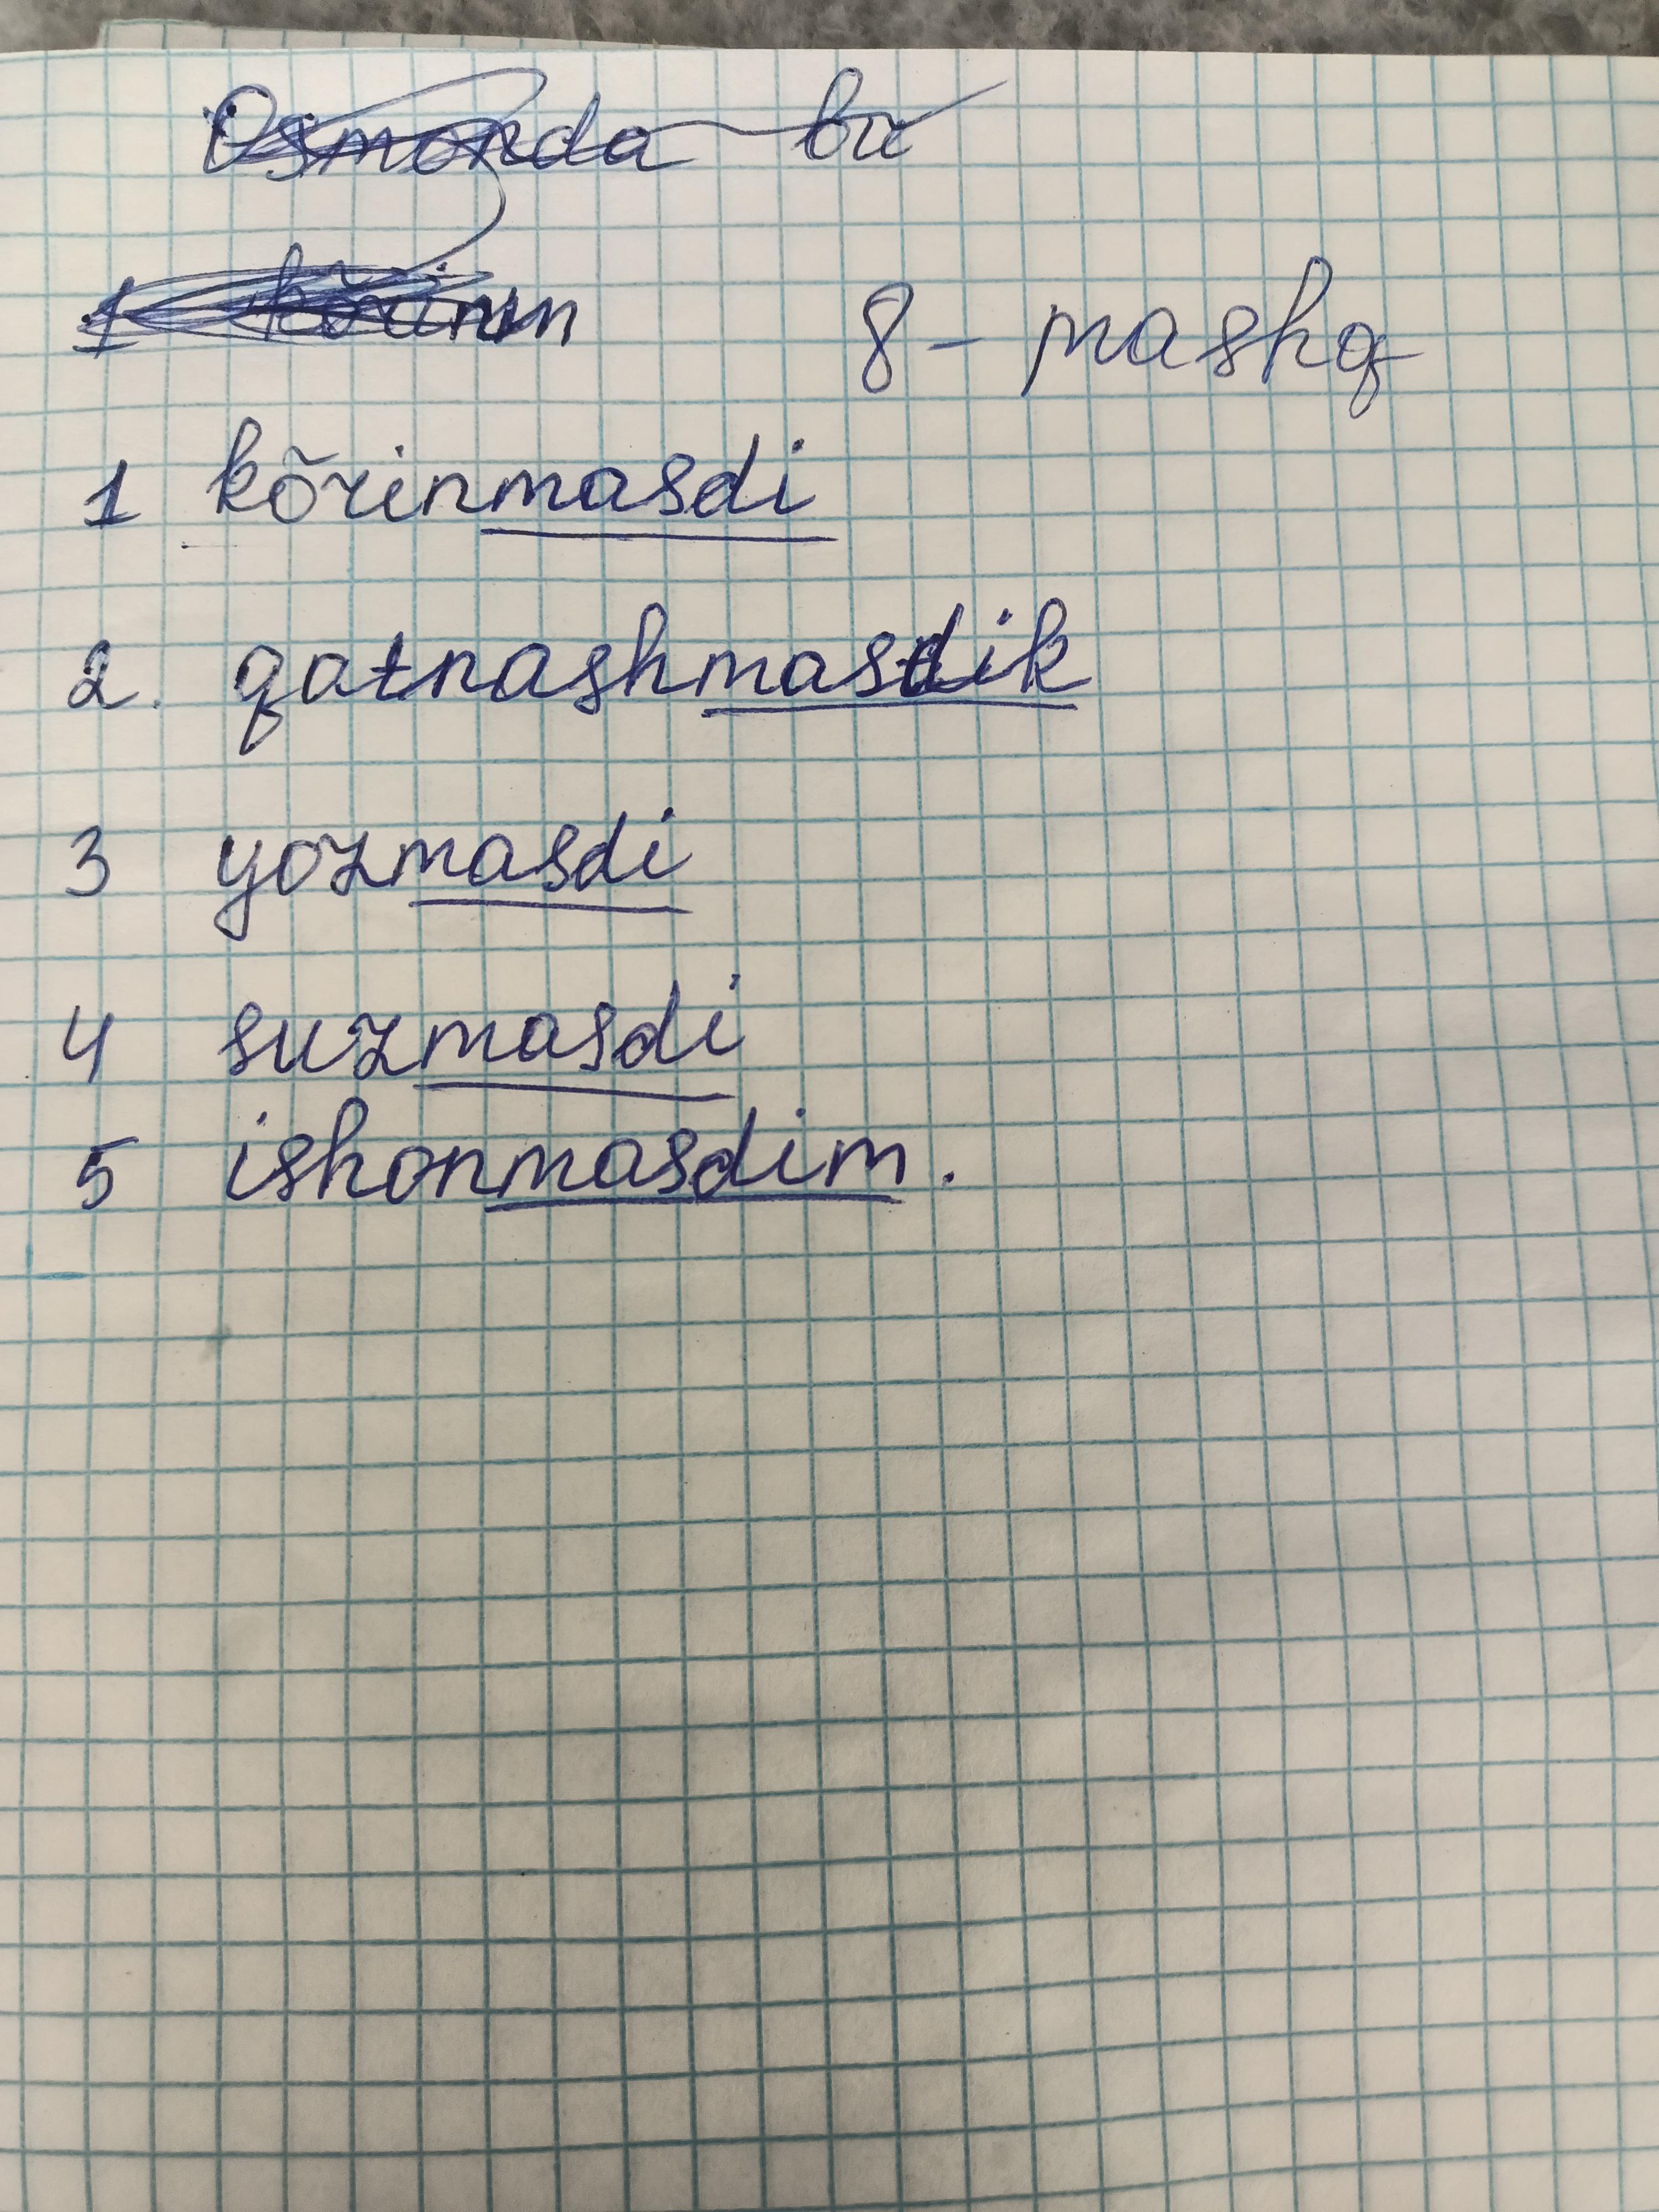 Osmonda bu
1 kõrinm
8 - mashq
1 kõrinmasdi
2. qatnashmasdik
3 yozmasdi
4 suzmasdi
5 ishonmasdim.